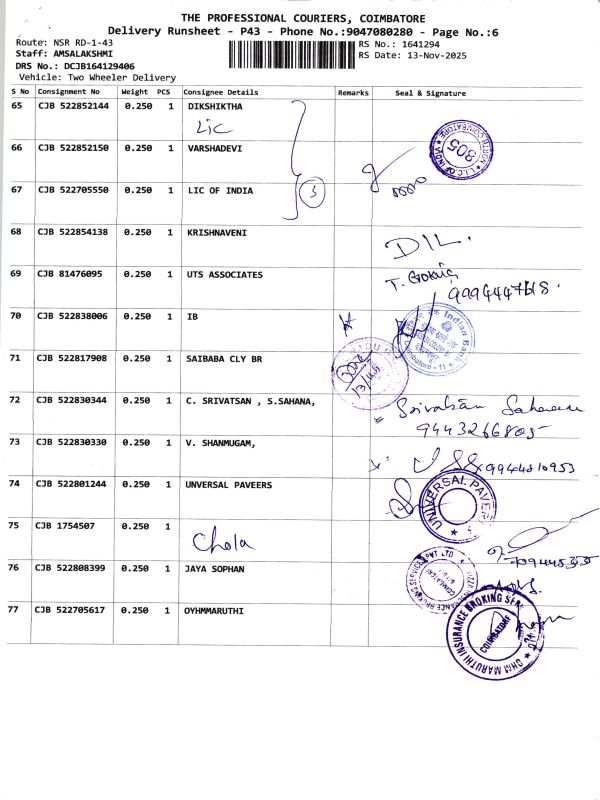 THE PROFESSIONAL COURIERS, COIMBATORE
Delivery Runsheet - P43 - Phone No.:9047080280 - Page No.:6
Route: NSR RD-1-43
RS No.: 1641294
Staff: AMSALAKSHMI
RS Date: 13-Nov-2025
DRS No.: DCJB164129406
Vehicle: Two Wheeler Delivery
S No Consignment No Weight PCS Consignee Details Remarks Seal & Signature
65 CJB 522852144 0.250 1 DIKSHIKTHA
LIC
66 CJB 522852150 0.250 1 VARSHADEVI
805
67 CJB 522705550 0.250 1 LIC OF INDIA
3
68 CJB 522854138 0.250 1 KRISHNAVENI
DIL.
69 CJB 81476095 0.250 1 UTS ASSOCIATES
9994447618.
70 CJB 522838006 0.250 1 IB
Indian Bank
71 CJB 522817908 0.250 1 SAIBABA CLY BR
72 CJB 522830344 0.250 1 C. SRIVATSAN , S.SAHANA,
Srivatsan Sahana
73 CJB 522830330 0.250 1 V. SHANMUGAM,
9944810953
74 CJB 522801244 0.250 1 UNVERSAL PAVEERS
UNIVERSAL PAVER
75 CJB 1754507 0.250 1
Chola
76 CJB 522808399 0.250 1 JAYA SOPHAN
77 CJB 522705617 0.250 1 OYHMMARUTHI
OHM MARUTHI INSURANCE BROKING SER
COIMBATORE